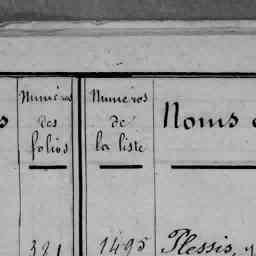 Numéros des folios
Numéros de la liste
Noms
321
1495
Plessis,